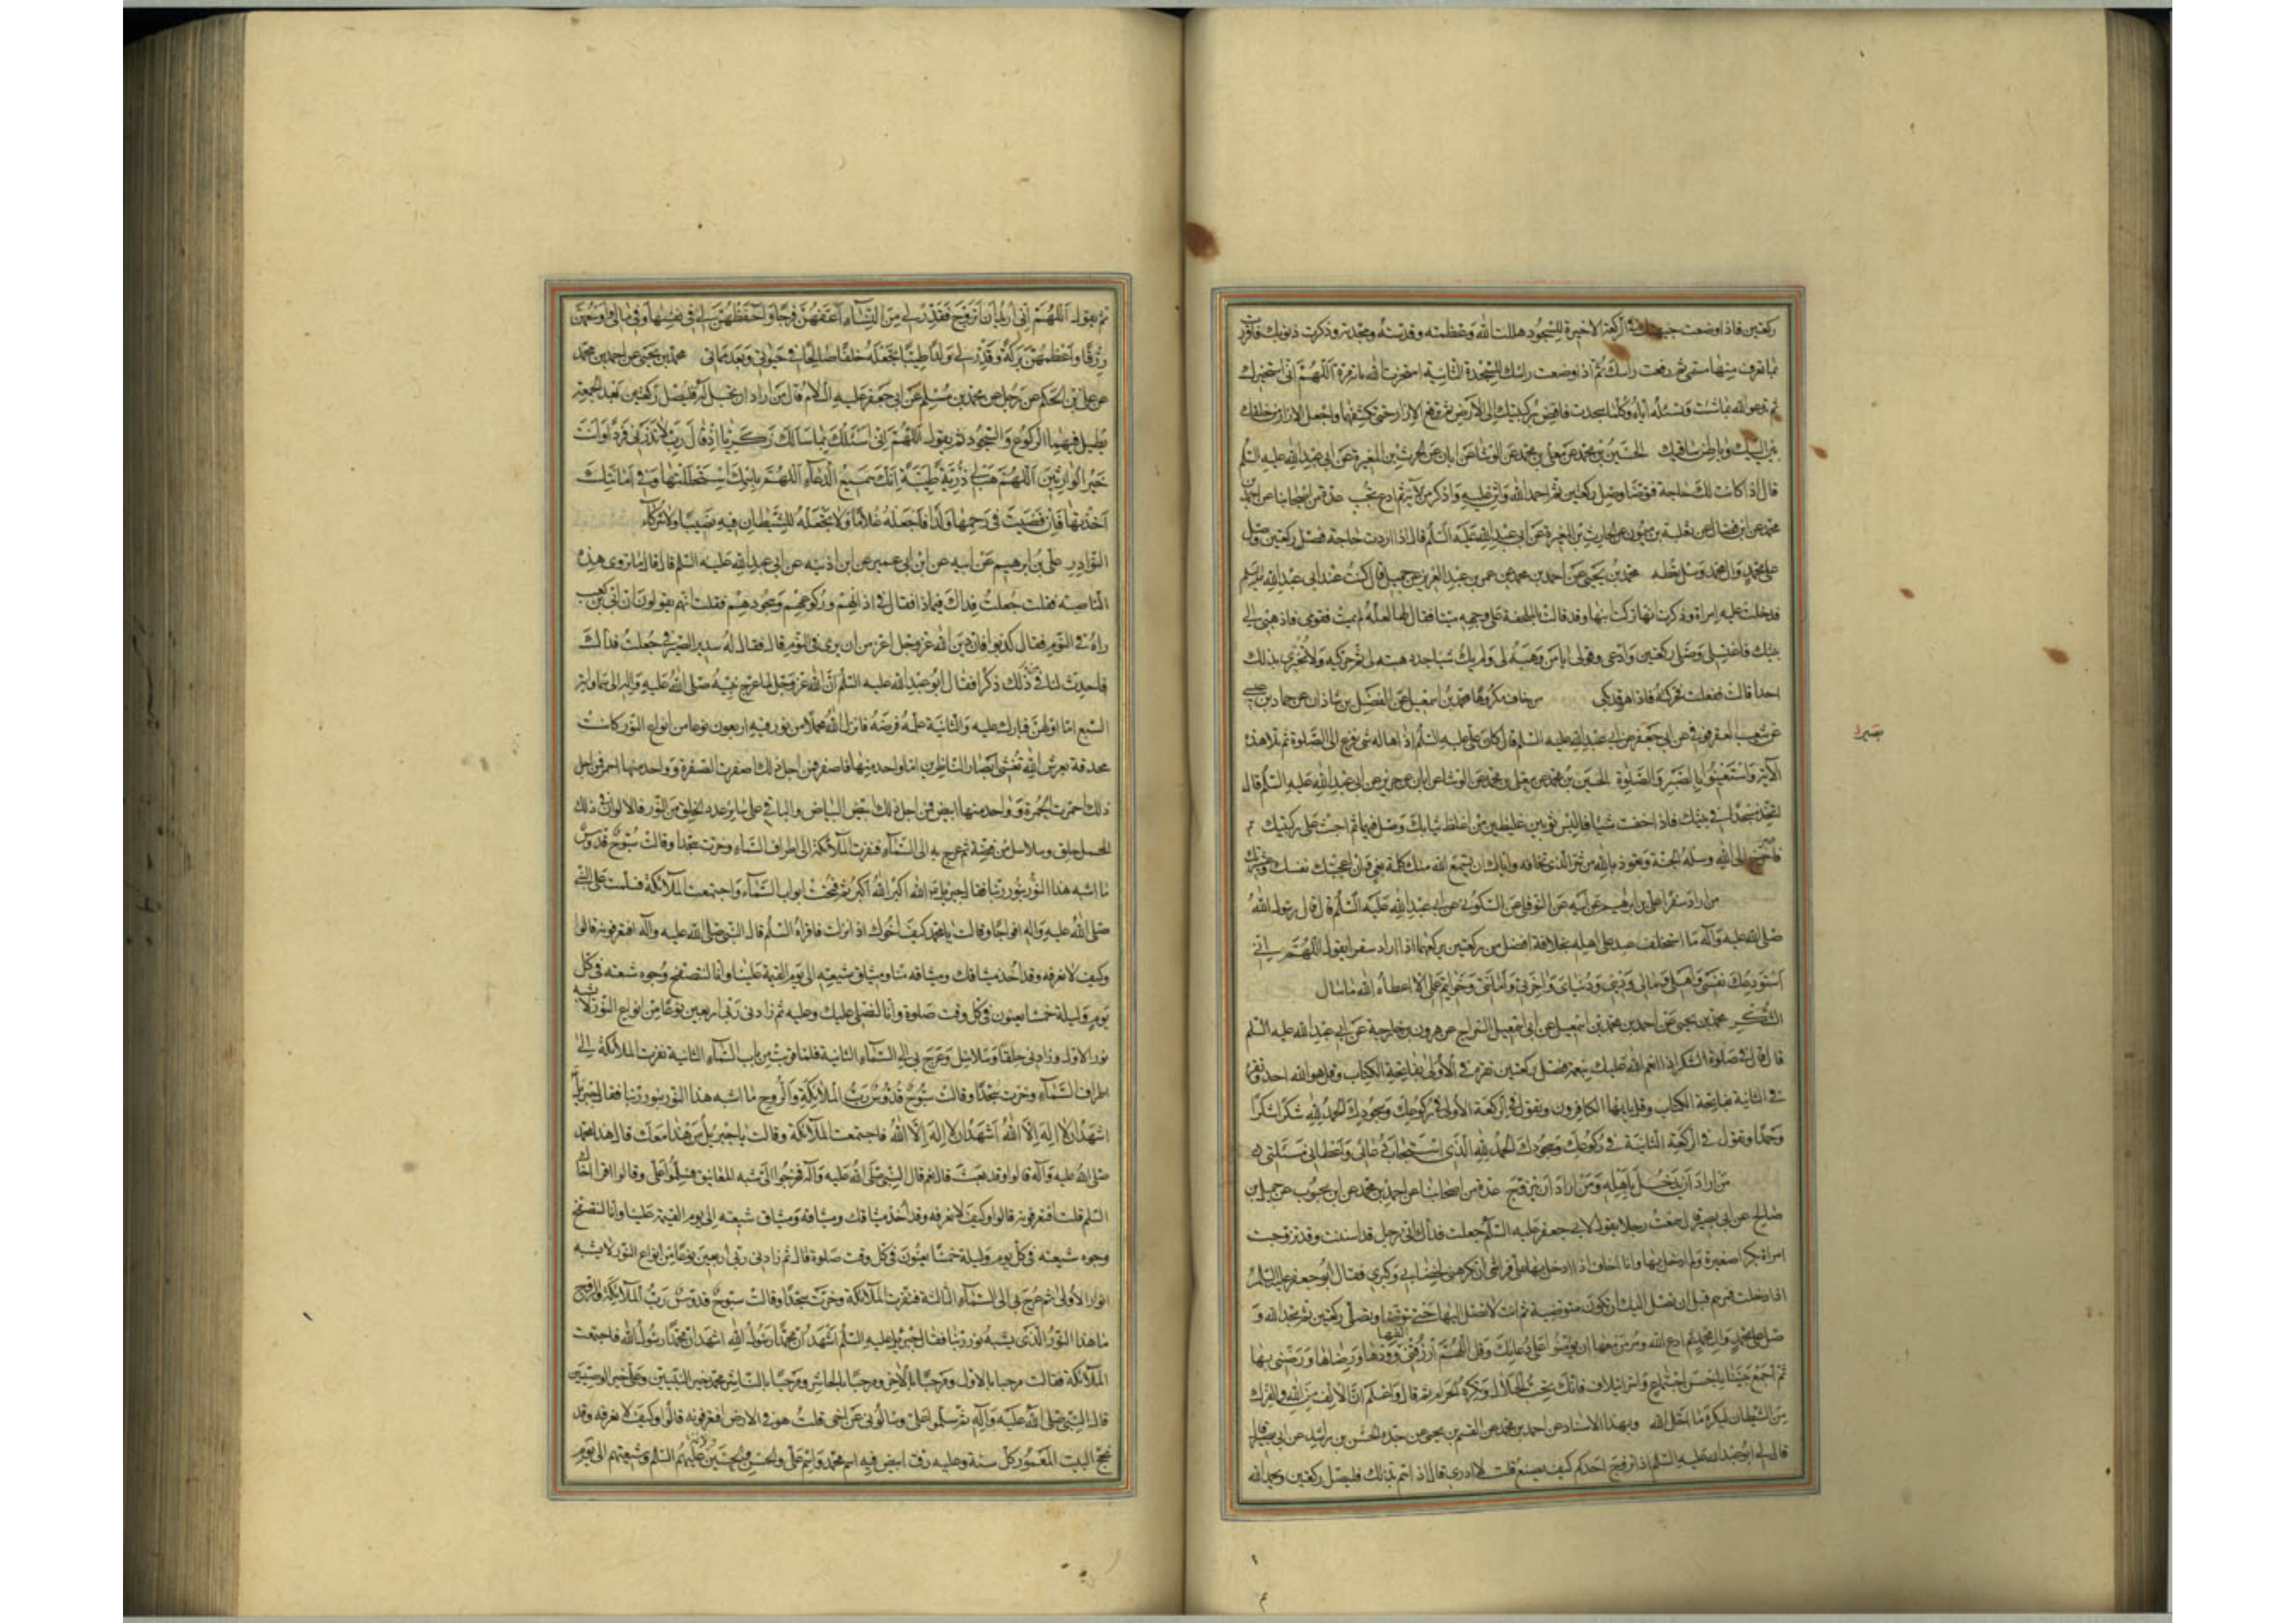 ركعتين فاذا وضعت جبهتك في الركعة الاخيرة للسجود هللت الله وعظمته وقدسته ومجدته وذكرت ذنوبك فاقررت
بما تعرف منها مسمى ثم رفعت راسك ثم اذا وضعت راسك للسجدة الثانية استخرت الله مائة مرة اللهم اني استخيرك
ثم تدعو الله بما شئت وتسئله اياه وكلما سجدت فافض بركبتيك الى الارض ثم ترفع الازار حتى تكشفهما واجعل الازار من خلفك
بين اليتيك وباطن ساقيك الحسين بن محمد عن معلى بن محمد عن الوشا عن ابان عن الحرث بن المغيرة عن ابي عبد الله عليه السلم
قال اذا كانت لك حاجة فتوضا وصل ركعتين ثم احمد الله واثن عليه واذكر من الائه ثم ادع تجب عدة من اصحابنا عن احمد بن
محمد عن ابن فضال عن ثعلبة بن ميمون عن الحارث بن المغيرة عن ابي عبد الله عليه السلم قال اذا اردت حاجة فصل ركعتين وصل
على محمد وال محمد وسل تعطه محمد بن يحيى عن احمد بن محمد عن عمر بن عبد العزيز عن جميل قال كنت عند ابي عبد الله عليه السلم
فدخلت عليه امراة وذكرت انها تركت ابنها وقد قالت بالملحفة على وجهه ميتا فقال لها لعله لم يمت فقومي فاذهبي الى
بيتك فاغتسلي وصلي ركعتين وادعي وقولي يا من وهبه لي ولم يك شيا جدد هبته لي ثم حركيه ولا تخبري بذلك
احدا قالت ففعلت فحركته فاذا هو قد بكى من خاف مكروها محمد بن اسمعيل عن الفضل بن شاذان عن حماد بن عيسى
عن شعيب العقرقوفي عن ابي جعفر عن ابي عبد الله عليه السلم قال كان علي عليه السلم اذا هاله شي فزع الى الصلوة ثم تلا هذه
بصير
الآية واستعينوا بالصبر والصلوة الحسين بن محمد عن معلى بن محمد عن الوشا عن ابان عن حريز عن ابي عبد الله عليه السلم قال
اتخذ مسجدا في بيتك فاذا خفت شيا فالبس ثوبين غليظين من اغلظ ثيابك وصل فيهما ثم اجث على ركبتيك
فاصرخ الى الله وسله الجنة وتعوذ بالله من شر الذي تخافه واياك ان يسمع الله منك كلمة بغي وان اعجبتك نفسك وعشيرتك
من اراد سفرا علي بن ابرهيم عن ابيه عن النوفلي عن السكوني عن ابي عبد الله عليه السلم قال قال رسول الله
صلى الله عليه وآله ما استخلف عبد على اهله بخلافة افضل من ركعتين يركعهما اذا اراد سفرا يقول اللهم اني
استودعك نفسي واهلي ومالي وديني ودنياي واخرتي وامانتي وخواتيم عملي الا اعطاه الله ما سال
الشكر محمد بن يحيى عن احمد بن محمد بن اسمعيل عن ابي اسمعيل السراج عن هرون بن خارجة عن ابي عبد الله عليه السلم
قال قال في صلوة الشكر اذا انعم الله عليك بنعمة فصل ركعتين تقرء في الاولى بفاتحة الكتاب وقل هو الله احد وتقرء
في الثانية بفاتحة الكتاب وقل يا ايها الكافرون وتقول في الركعة الاولى في ركوعك وسجودك الحمد لله شكرا شكرا
وحمدا وتقول في الركعة الثانية في ركوعك وسجودك الحمد لله الذي استجاب دعائي واعطاني مسئلتي
من اراد ان يدخل باهله ومن اراد ان يتزوج عدة من اصحابنا عن احمد بن محمد عن ابن محبوب عن جميل بن
صالح عن ابي بصير قال سمعت رجلا يقول لابي جعفر عليه السلم جعلت فداك اني رجل قد اسننت وقد تزوجت
امراة بكرا صغيرة ولم ادخل بها وانا اخاف اذا ادخل بها على فراشي ان تكرهني لخضابي وكبري فقال ابو جعفر عليه السلم
اذا دخلت فمرهم قبل ان تصل اليك ان تكون متوضية ثم انت لا تصل اليها حتى توضا وتصلي ركعتين ثم مجد الله و
صل على محمد وال محمد ثم ادع الله ومر من معها ان يؤمنوا على دعائك وقل اللهم ارزقني الفها وودها ورضاها ورضني بها
ثم اجمع بيننا باحسن اجتماع وانس ائتلاف فانك تحب الحلال وتكره الحرام ثم قال واعلم ان الالف من الله والفرك
من الشيطان ليكره ما احل الله وبهذا الاسناد عن احمد بن محمد عن القسم بن يحيى عن جده الحسن بن راشد عن ابي بصير قال
قال لي ابو عبد الله عليه السلم اذا تزوج احدكم كيف يصنع قلت لا ادري قال اذا هم بذلك فليصل ركعتين ويحمد الله
ثم يقول اللهم اني اريد ان اتزوج فقدر لي من النساء اعفهن فرجا واحفظهن لي في نفسها وفي مالي واوسعهن
رزقا واعظمهن بركة وقدر لي ولدا طيبا تجعله خلفا صالحا في حيوتي وبعد مماتي محمد بن يحيى عن احمد بن محمد
عن علي بن الحكم عن رجل عن محمد بن مسلم عن ابي جعفر عليه السلام قال من اراد ان يحبل له فليصل ركعتين بعد الجمعة
يطيل فيهما الركوع والسجود ثم يقول اللهم اني اسئلك بما سالك زكريا اذ قال رب لا تذرني فردا وانت
خير الوارثين اللهم هب لي ذرية طيبة انك سميع الدعاء اللهم باسمك استحللتها وفي امانتك
اخذتها فان قضيت في رحمها ولدا فاجعله غلاما ولا تجعل للشيطان فيه نصيبا ولا شركا
النوادر علي بن ابرهيم عن ابيه عن ابن ابي عمير عن ابن اذينه عن ابي عبد الله عليه السلم قال قال ما تروي هذه
الناصبه فقلت جعلت فداك فيما ذا فقال في اذانهم وركوعهم وسجودهم فقلت انهم يقولون ان ابي بن كعب
راه في النوم فقال كذبوا فان دين الله عز وجل اعز من ان يرى في النوم قال فقال له سدير الصيرفي جعلت فداك
فاحدث لنا في ذلك ذكرا فقال ابو عبد الله عليه السلم ان الله عز وجل لما عرج بنبيه صلى الله عليه وآله الى سماواته
السبع اما اولهن فبارك عليه والثانية علمه فرضه فانزل الله محملا من نور فيه اربعون نوعا من انواع النور كانت
محدقة بعرش الله تغشي ابصار الناظرين اما واحد منها فاصفر فمن اجل ذلك اصفرت الصفرة وواحد منها احمر فمن اجل
ذلك احمرت الحمرة وواحد منها ابيض فمن اجل ذلك ابيض البياض والباقي على ساير عدد الخلق من النور فالالوان في ذلك
المحمل حلق وسلاسل من فضة ثم عرج به الى السماء فنفرت الملائكة الى اطراف السماء وخرت سجدا وقالت سبوح قدوس
ما اشبه هذا النور بنور ربنا فقال جبرئيل الله اكبر الله اكبر ثم فتحت ابواب السماء واجتمعت الملائكة فسلمت على النبي
صلى الله عليه وآله افواجا وقالت يا محمد كيف اخوك اذا نزلت فاقراه السلم قال النبي صلى الله عليه وآله افتعرفونه قالوا
وكيف لا نعرفه وقد اخذ ميثاقك وميثاقه منا وميثاق شيعته الى يوم القيمة علينا وانا لنتصفح وجوه شيعته في كل
يوم وليلة خمسا يعنون في كل وقت صلوة وانا لنصلي عليك وعليه ثم زادني ربي اربعين نوعا من انواع النور لا يشبه
نور الاول وزادني حلقا وسلاسل وعرج بي الى السماء الثانية فلما قربت من باب السماء الثانية نفرت الملائكة الى
اطراف السماء وخرت سجدا وقالت سبوح قدوس رب الملائكة والروح ما اشبه هذا النور بنور ربنا فقال جبرئيل
اشهد ان لا اله الا الله اشهد ان لا اله الا الله فاجتمعت الملائكة وقالت يا جبريل من هذا معك قال هذا محمد
صلى الله عليه وآله قالوا وقد بعث قال نعم قال النبي صلى الله عليه وآله فخرجوا الي شبه المعانيق فسلموا علي وقالوا اقرا اخاك
السلم قلت افتعرفونه قالوا وكيف لا نعرفه وقد اخذ ميثاقك وميثاقه وميثاق شيعته الى يوم القيمة علينا وانا لنتصفح
وجوه شيعته في كل يوم وليلة خمسا يعنون في كل وقت صلوة قال ثم زادني ربي اربعين نوعا من انواع النور لا تشبه
انوار الاولى ثم عرج بي الى السماء الثالثة فنفرت الملائكة وخرت سجدا وقالت سبوح قدوس رب الملائكة والروح
ما هذا النور الذي يشبه نور ربنا فقال جبرئيل عليه السلم اشهد ان محمدا رسول الله اشهد ان محمدا رسول الله فاجتمعت
الملائكة فقالت مرحبا بالاول ومرحبا بالاخر ومرحبا بالحاشر ومرحبا بالناشر محمد خير النبيين وعلي خير الوصيين
قال النبي صلى الله عليه وآله ثم سلموا علي وسالوني عن اخي قلت هو في الارض افتعرفونه قالوا وكيف لا نعرفه وقد
نحج البيت المعمور كل سنة وعليه رق ابيض فيه اسم محمد واسم علي والحسن والحسين عليهم السلم وشيعتهم الى يوم